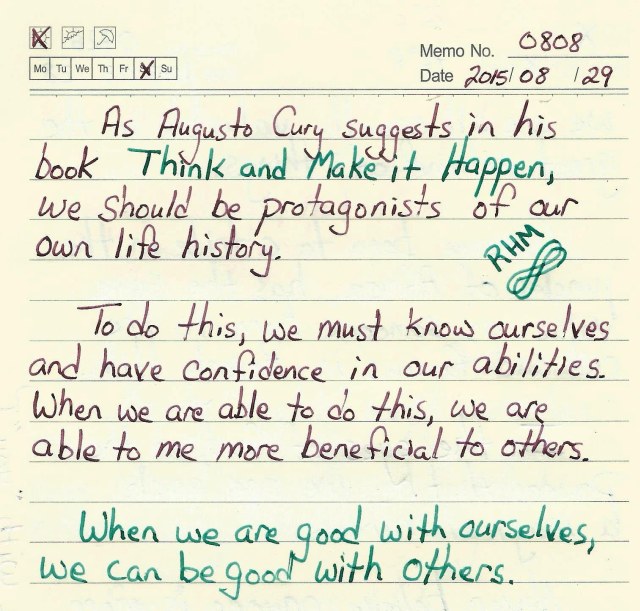 Memo No. 0808
Mo Tu We Th Fr Sa Su
Date 2015/08/29
As Augusto Cury suggests in his
book Think and Make it Happen,
we should be protagonists of our
own life history.
RHM
To do this, we must know ourselves
and have confidence in our abilities.
When we are able to do this, we are
able to me more beneficial to others.
When we are good with ourselves,
we can be good with others.